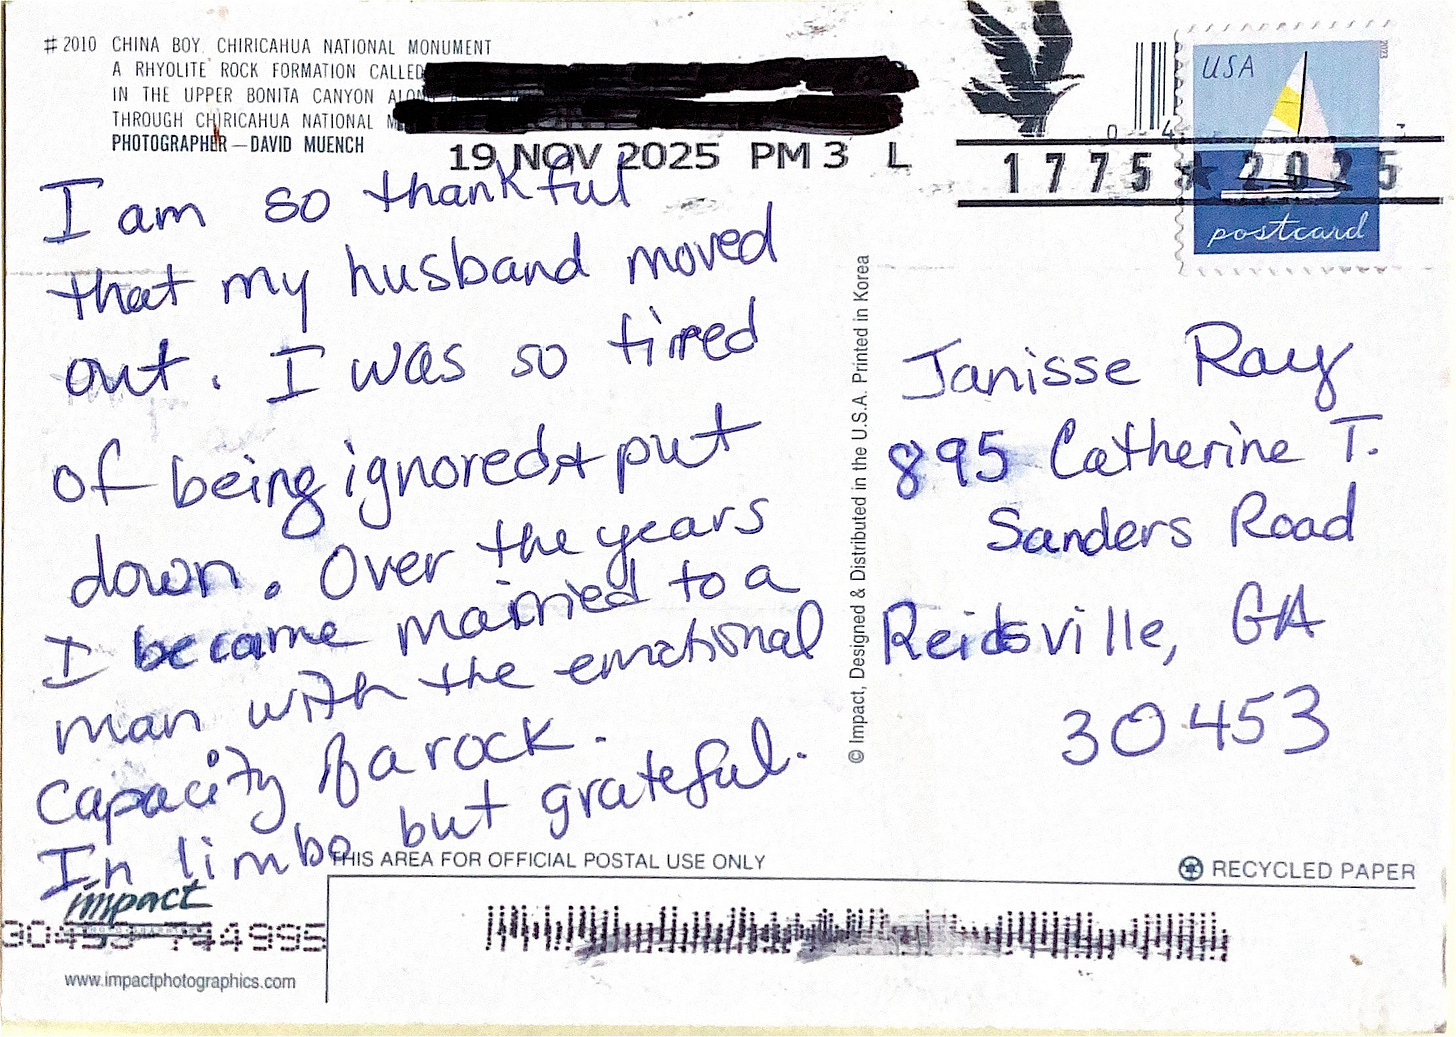 # 2010 CHINA BOY, CHIRICAHUA NATIONAL MONUMENT
A RHYOLITE ROCK FORMATION CALLED
IN THE UPPER BONITA CANYON
THROUGH CHIRICAHUA NATIONAL
PHOTOGRAPHER — DAVID MUENCH
19 NOV 2025 PM 3 L
1775 ★ 2025
USA
2023
postcard
I am so thankful
that my husband moved
out. I was so tired
of being ignored + put
down. Over the years
I became married to a
man with the emotional
capacity of a rock.
In limbo but grateful.
© Impact, Designed & Distributed in the U.S.A. Printed in Korea
Janisse Ray
895 Catherine T.
Sanders Road
Reidsville, GA
30453
THIS AREA FOR OFFICIAL POSTAL USE ONLY
RECYCLED PAPER
impact
30453-744995
www.impactphotographics.com